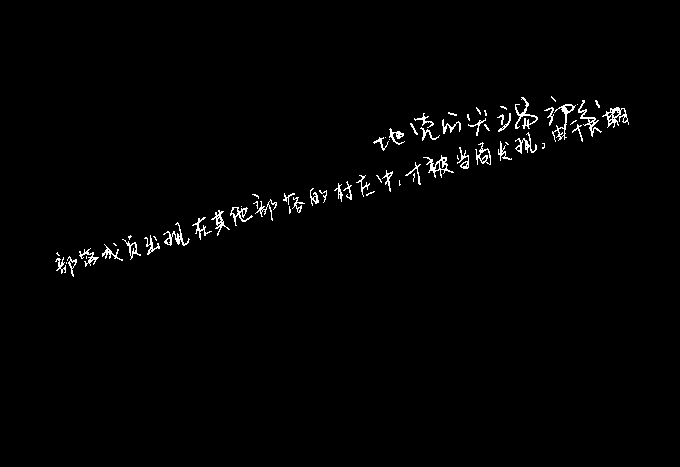 地壳的尖端部分
部落成员出现在其他部落的村庄中,才被当局发现。由于长期